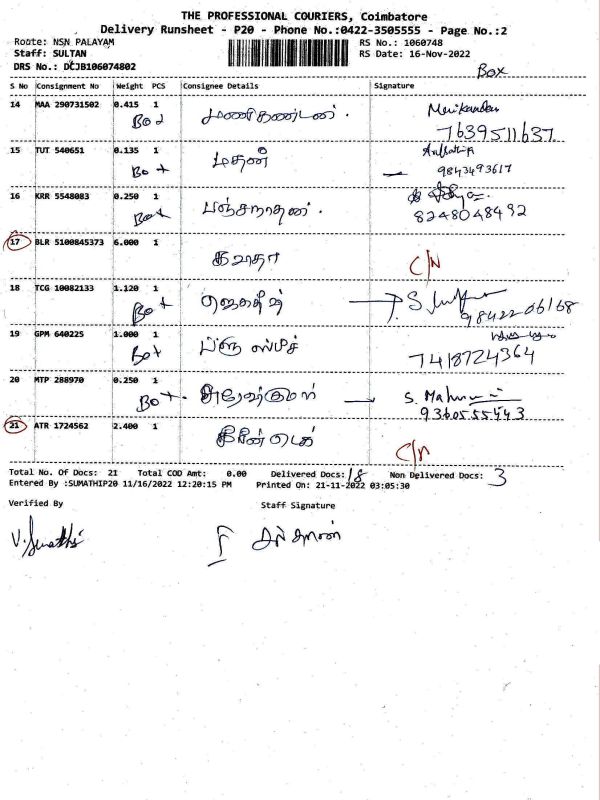 THE PROFESSIONAL COURIERS, Coimbatore
Delivery Runsheet - P20 - Phone No.:0422-3505555 - Page No.:2
Route: NSN PALAYAM RS No.: 1060748
Staff: SULTAN RS Date: 16-Nov-2022
DRS No.: DCJB106074802
Box
S No Consignment No Weight PCS Consignee Details Signature
14 MAA 290731502 0.415 1 மணிகண்டன். Manikandan
Box 7639511637
15 TUT 540651 0.135 1 மதன்
Box 9843493617
16 KRR 5548083 0.250 1 பஞ்சநாதன்.
Box 8248048492
17 BLR 5100845373 6.000 1
கவிதா C/N
18 TCG 10082133 1.120 1 ஜெகதீஷ்
Box 9842206168
19 GPM 640225 1.000 1 ப்ளு ஸ்டிச்
Box 7418724364
20 MTP 288970 0.250 1 சுரேஷ்குமார் S.
Box 9360555443
21 ATR 1724562 2.400 1
C/N
Total No. Of Docs: 21 Total COD Amt: 0.00 Delivered Docs: 18 Non Delivered Docs: 3
Entered By :SUMATHIP20 11/16/2022 12:20:15 PM Printed On: 21-11-2022 03:05:30
Verified By Staff Signature
V. Sumathi சுல்தான்